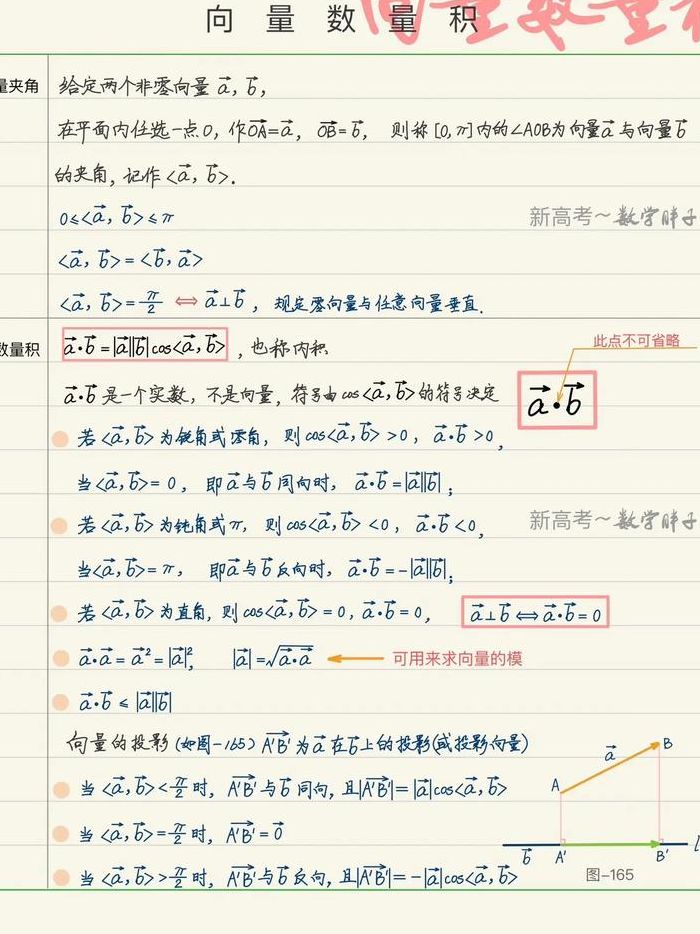 向量数量积
向量数量积
量夹角
给定两个非零向量 a⃗, b⃗,
在平面内任选一点O, 作OA⃗=a⃗, OB⃗=b⃗, 则称[0,π]内的∠AOB为向量a⃗与向量b⃗
的夹角, 记作<a⃗, b⃗>.
0≤<a⃗, b⃗>≤π
新高考～数学胖子
<a⃗, b⃗>=<b⃗, a⃗>
<a⃗, b⃗>=π/2 ⟺ a⃗⊥b⃗, 规定零向量与任意向量垂直.
数量积
a⃗•b⃗=|a⃗||b⃗|cos<a⃗, b⃗>, 也称内积
此点不可省略
a⃗•b⃗是一个实数, 不是向量, 符号由cos<a⃗, b⃗>的符号决定
a⃗•b⃗
若<a⃗, b⃗>为锐角或零角, 则cos<a⃗, b⃗>>0, a⃗•b⃗>0,
当<a⃗, b⃗>=0, 即a⃗与b⃗同向时, a⃗•b⃗=|a⃗||b⃗|;
若<a⃗, b⃗>为钝角或π, 则cos<a⃗, b⃗><0, a⃗•b⃗<0,
新高考～数学胖子
当<a⃗, b⃗>=π, 即a⃗与b⃗反向时, a⃗•b⃗=-|a⃗||b⃗|;
若<a⃗, b⃗>为直角, 则cos<a⃗, b⃗>=0, a⃗•b⃗=0, a⃗⊥b⃗⟺a⃗•b⃗=0
a⃗•a⃗=a⃗²=|a⃗|², |a⃗|=√(a⃗•a⃗) ← 可用来求向量的模
a⃗•b⃗≤|a⃗||b⃗|
向量的投影(如图-165) A'B'⃗为a⃗在b⃗上的投影(或投影向量)
当<a⃗, b⃗><π/2时, A'B'⃗与b⃗同向, 且|A'B'⃗|=|a⃗|cos<a⃗, b⃗>
当<a⃗, b⃗>=π/2时, A'B'⃗=0⃗
当<a⃗, b⃗>>π/2时, A'B'⃗与b⃗反向, 且|A'B'⃗|=-|a⃗|cos<a⃗, b⃗>
a⃗
B
A
b⃗
A'
B'
l
图-165